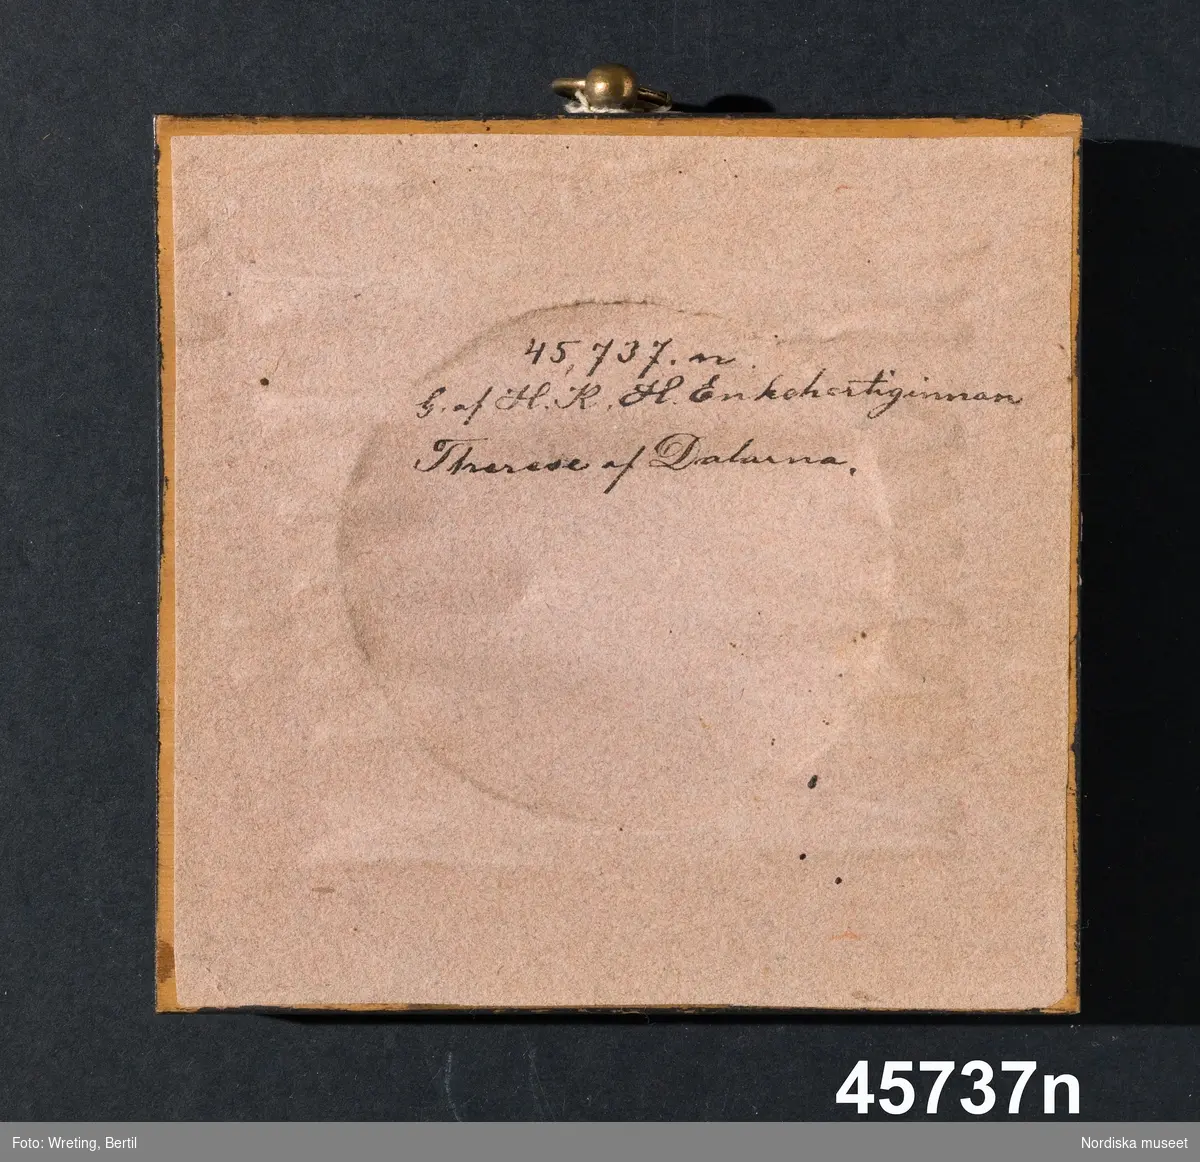 45,737.n.
G. af H. K. H. Enkehertiginnan
Therese af Dalarna.
45737n
Foto: Wreting, Bertil
Nordiska museet